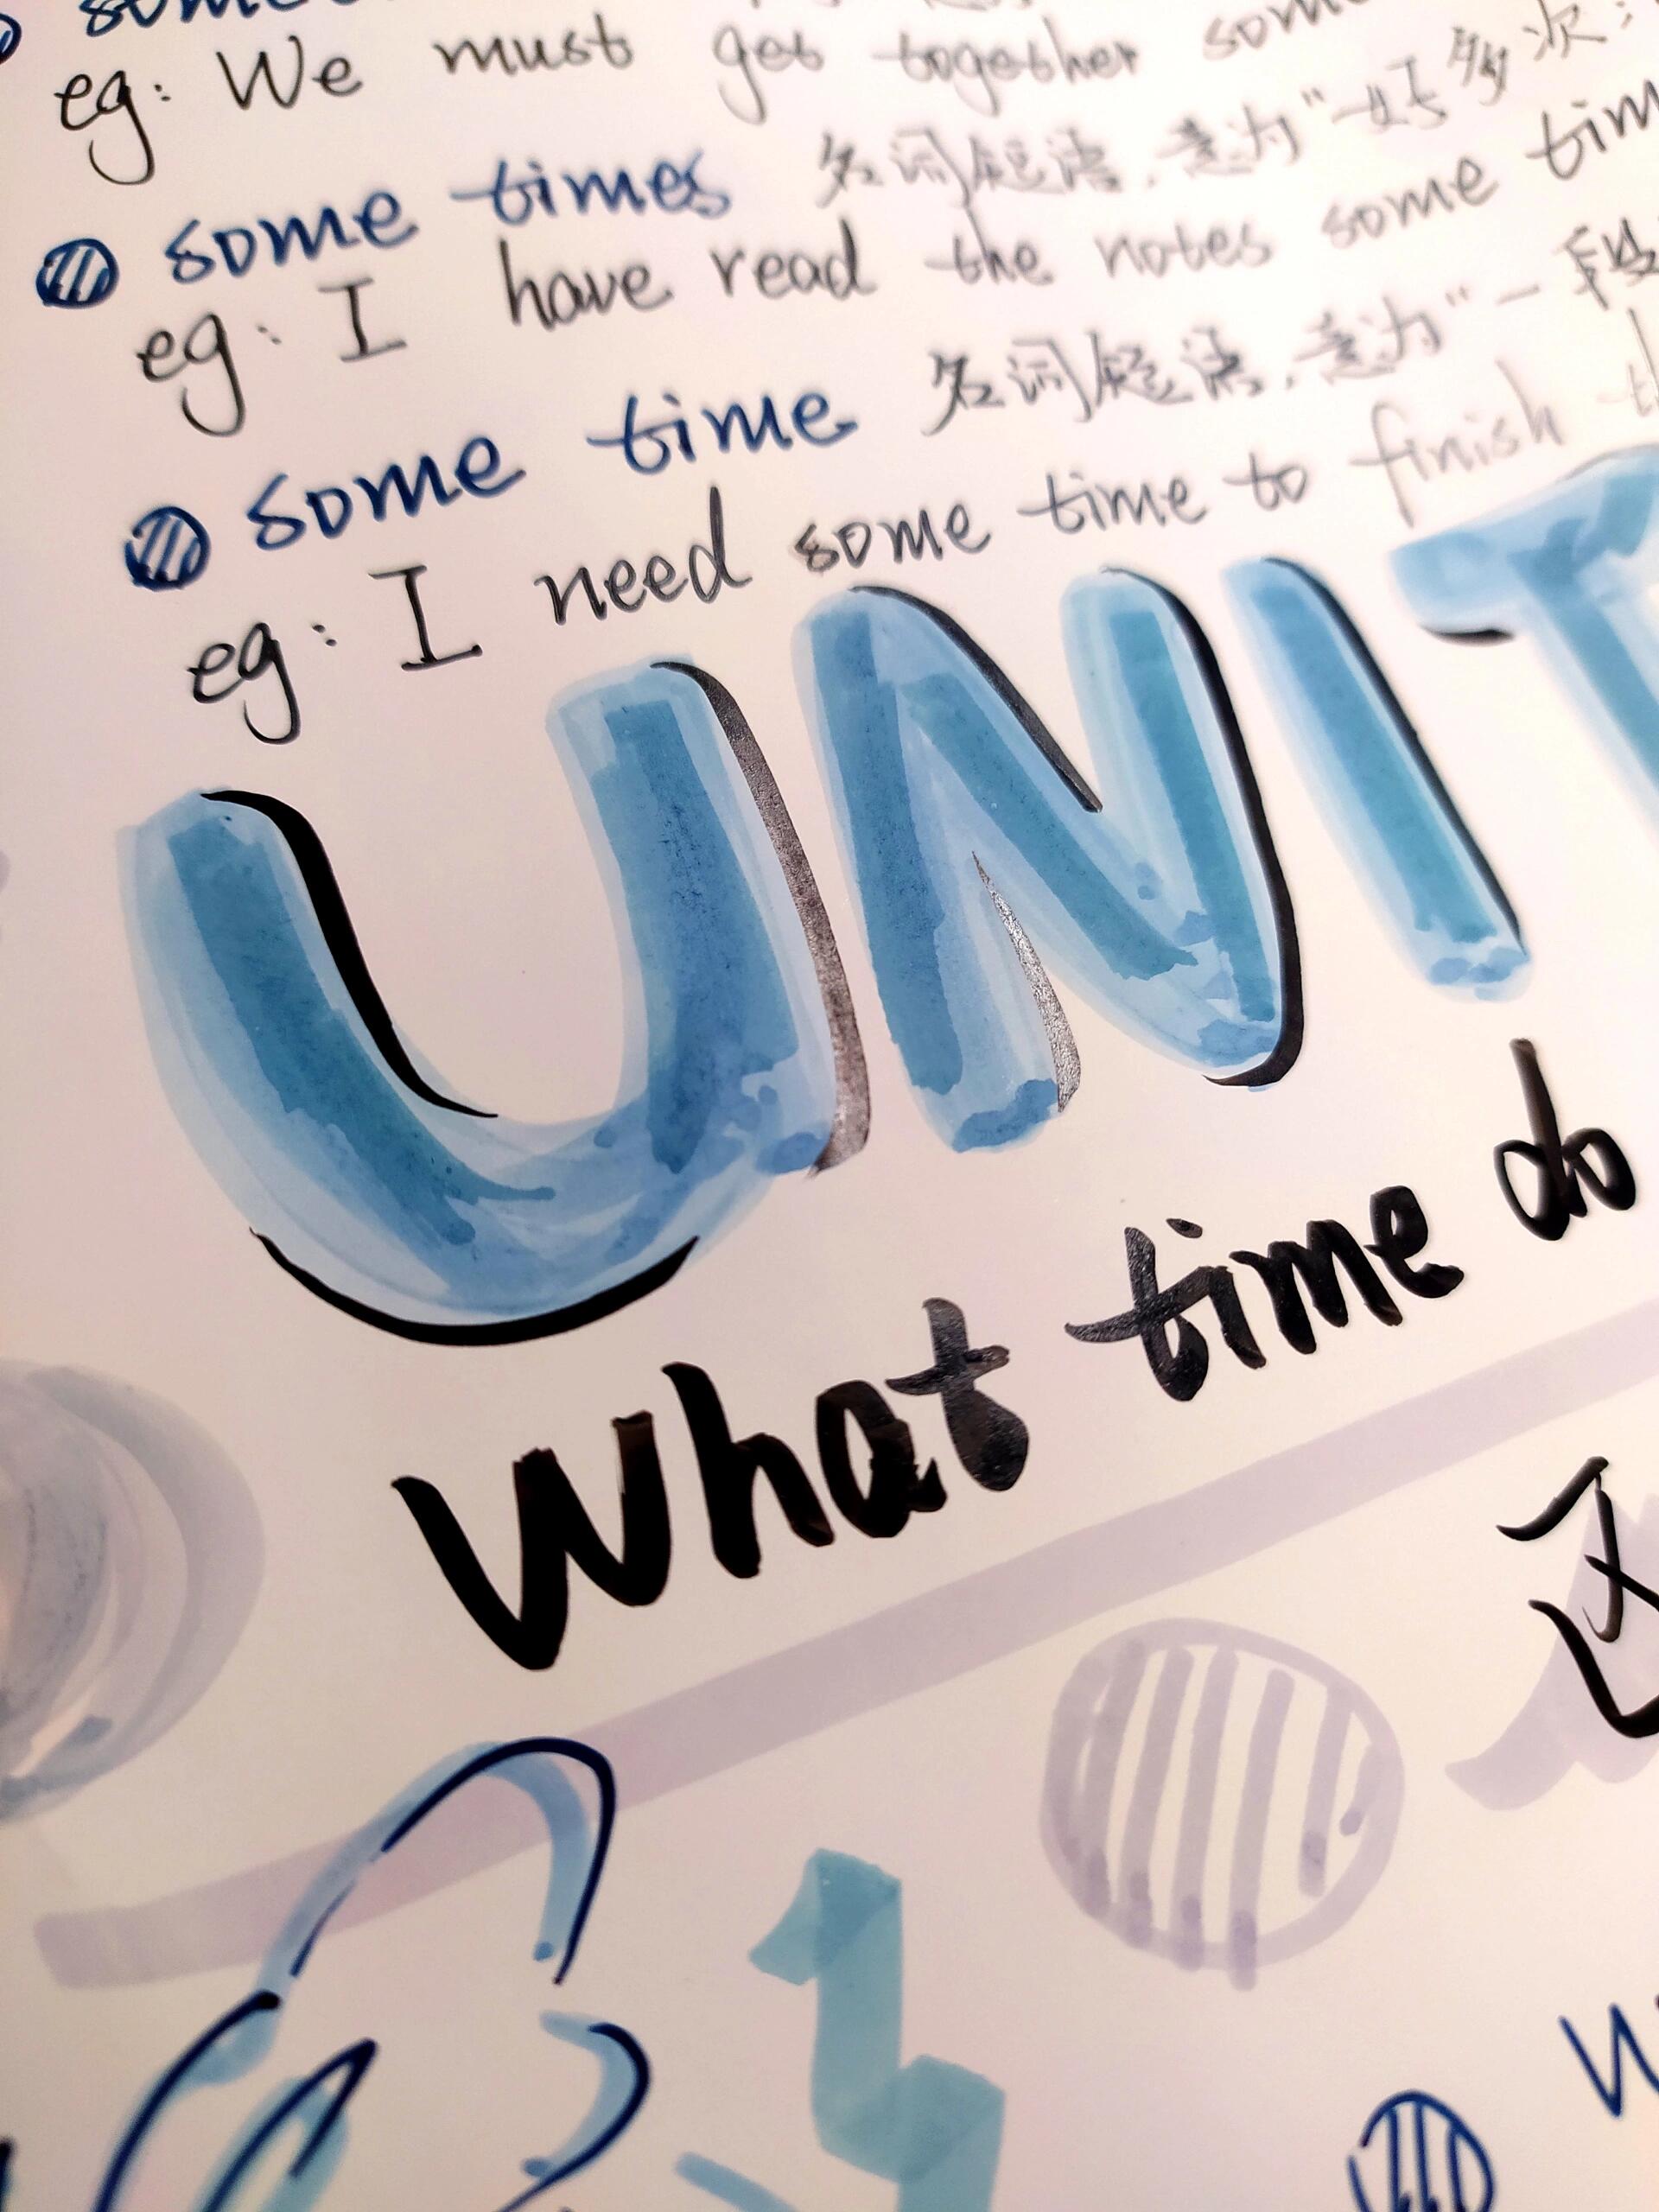 eg: We must get together som
some times 名词短语,意为"好多次:
eg: I have read the notes some tim
some time 名词短语,意为"一段
eg: I need some time to finish th
UNIT
What time do
这